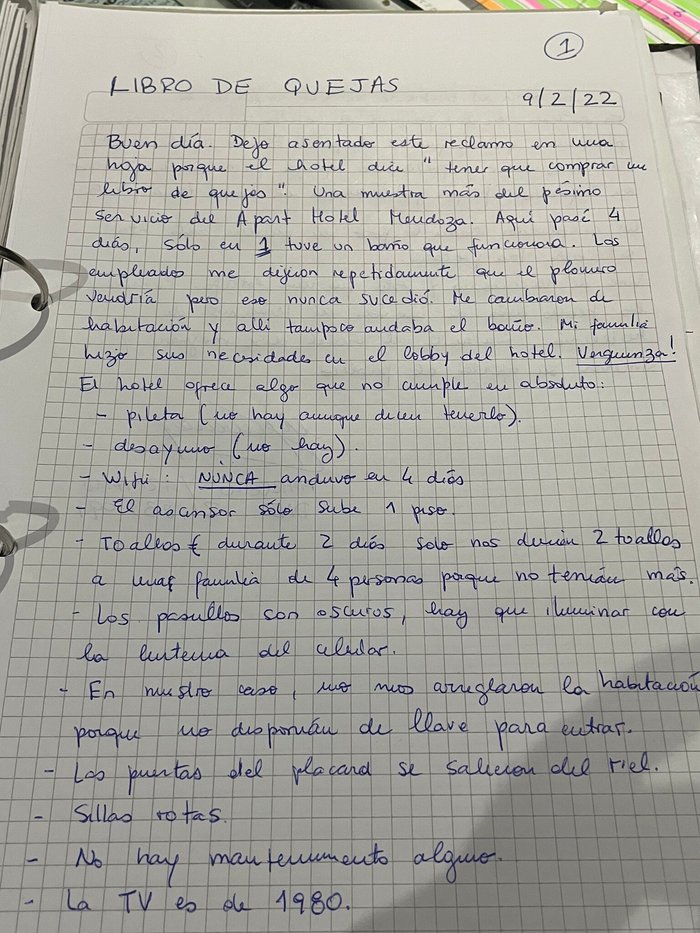 1
LIBRO DE QUEJAS
9/2/22
Buen día. Dejo asentado este reclamo en una
hoja porque el hotel dice "tener que comprar un
libro de quejas". Una muestra más del pésimo
servicio del Apart Hotel Mendoza. Aquí pasé 4
días, sólo en 1 tuve un baño que funcionara. Los
empleados me dijeron repetidamente que el plomero
vendría pero eso nunca sucedió. Me cambiaron de
habitación y allí tampoco andaba el baño. Mi familia
hizo sus necesidades en el lobby del hotel. Verguenza!
El hotel ofrece algo que no cumple en absoluto:
- pileta (no hay aunque dicen tenerla).
- desayuno (no hay).
- Wifi: NUNCA anduvo en 4 días
- El ascensor sólo sube 1 piso.
- Toallas durante 2 días solo nos decían 2 toallas
a una familia de 4 personas porque no tenían más.
- Los pasillos son oscuros, hay que iluminar con
la linterna del celular.
- En nuestro caso, no nos arreglaron la habitación
porque no disponían de llave para entrar.
- Las puertas del placard se salieron del riel.
- Sillas rotas.
- No hay mantenimiento alguno.
- La TV es de 1980.